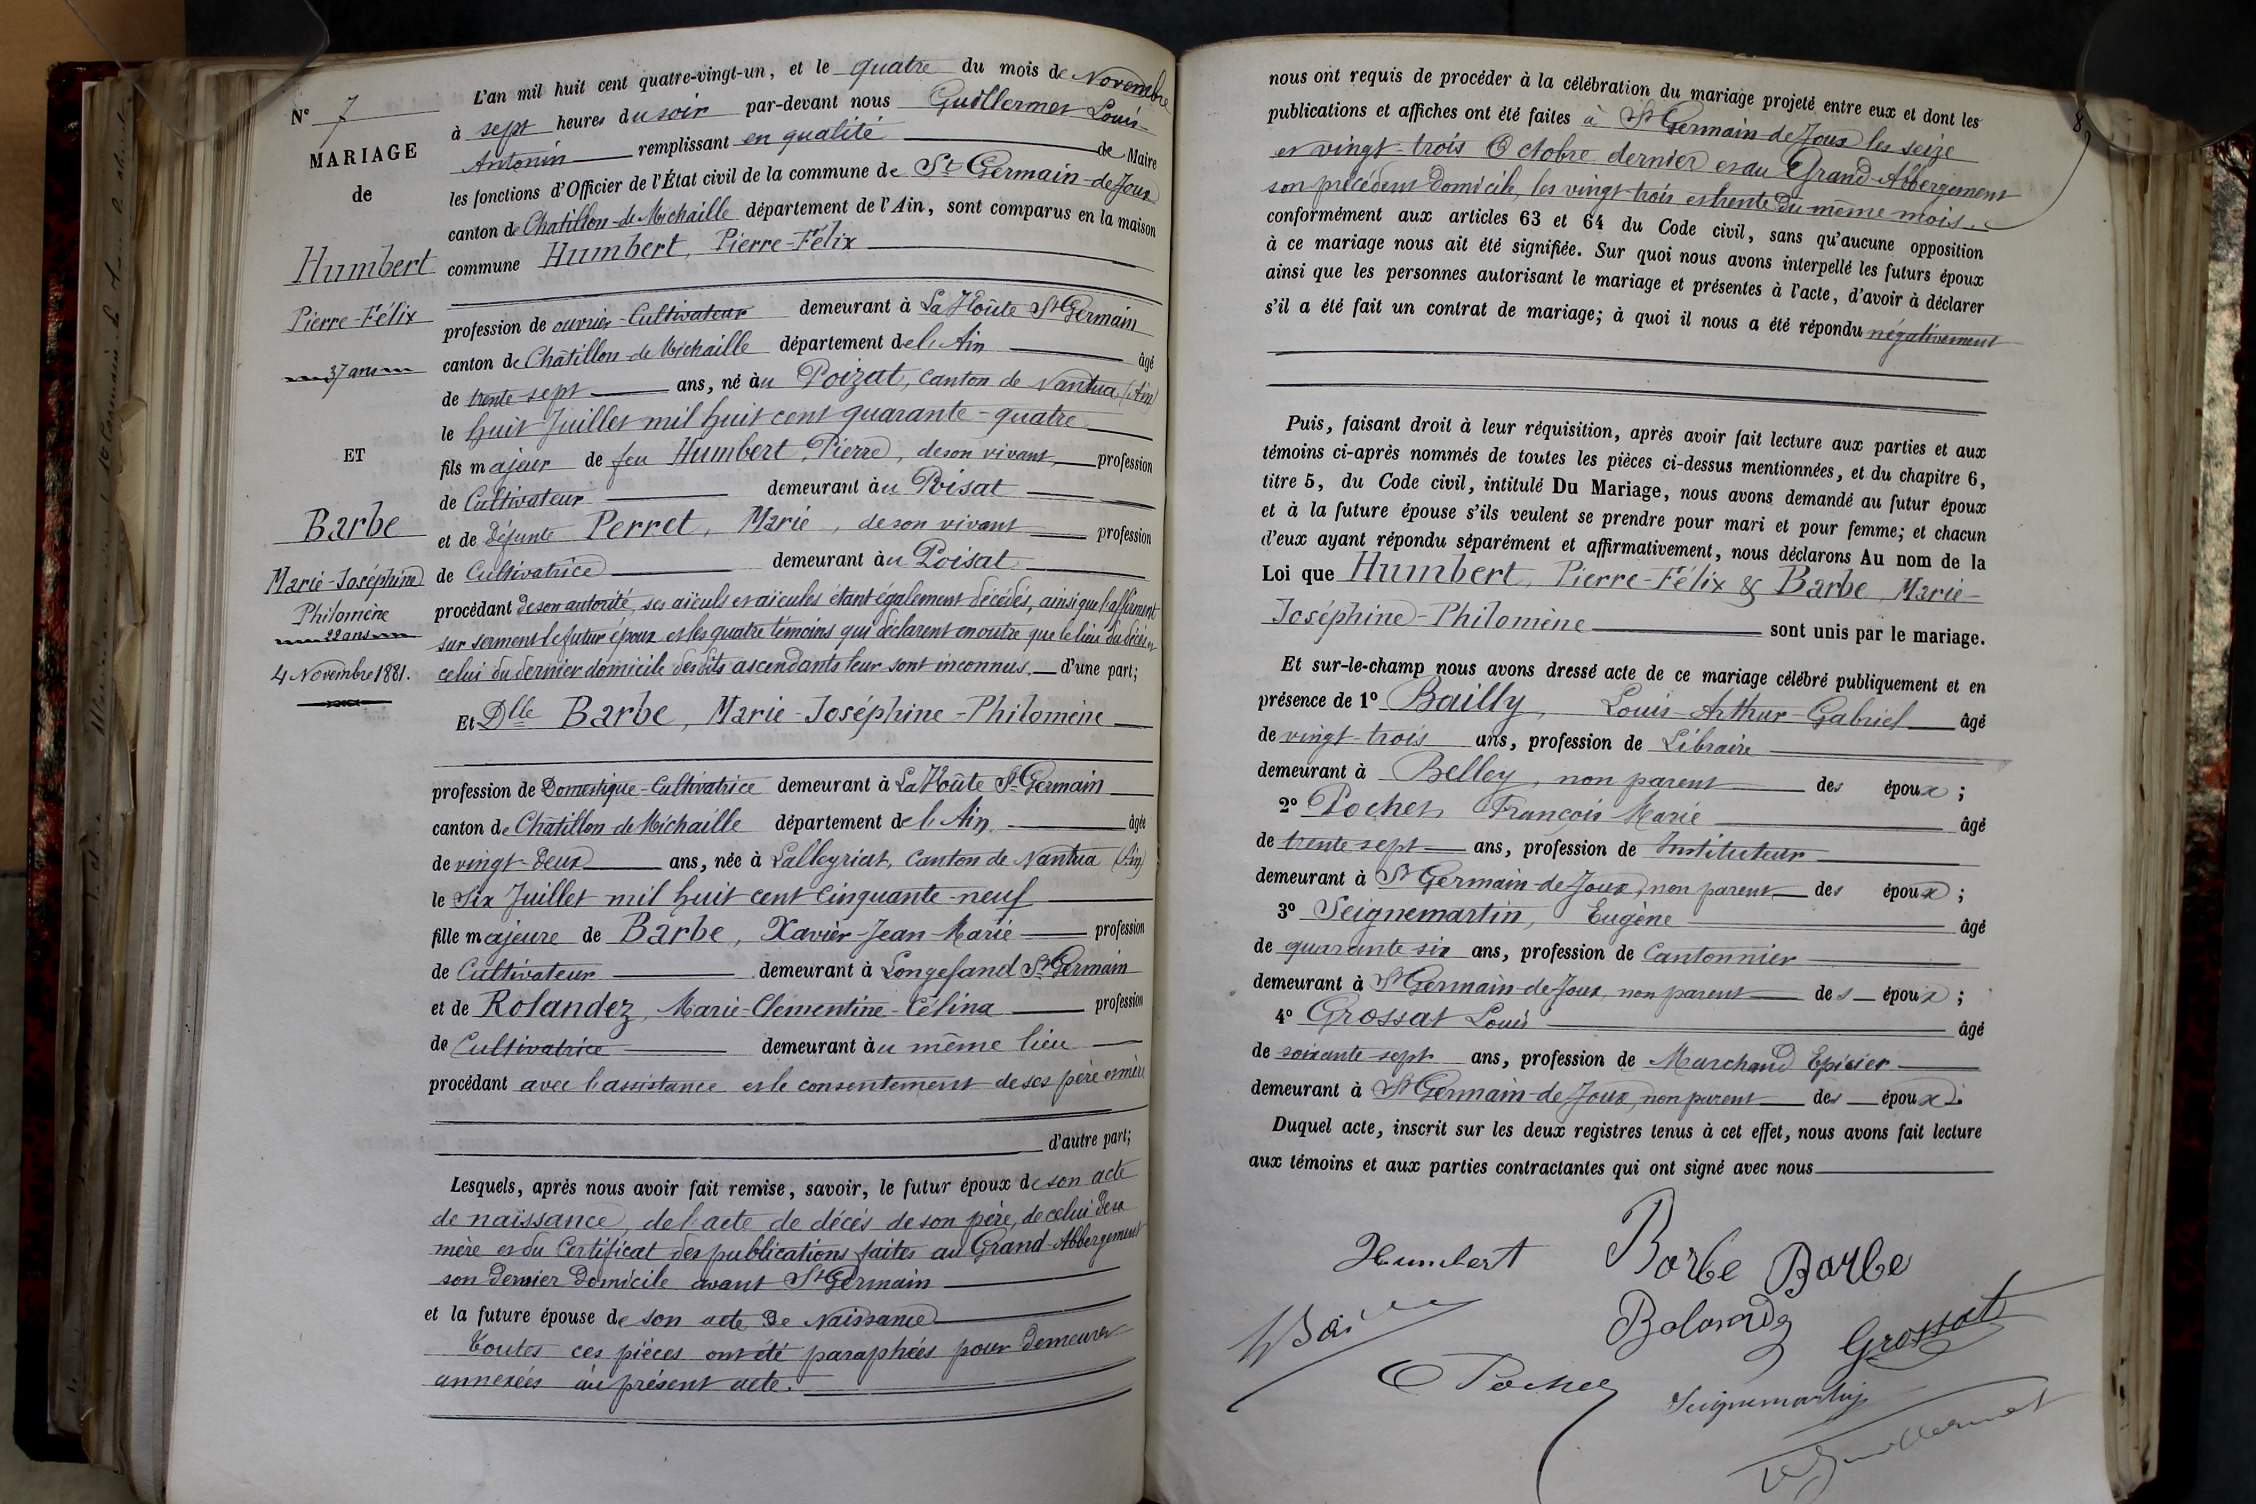 N° 7
MARIAGE
de
Humbert
Pierre-Félix
37 ans
ET
Barbe
Marie-Joséphine
Philomène
22 ans
4 Novembre 1881.
L'an mil huit cent quatre-vingt-un, et le quatre du mois de Novembre
à sept heures du soir par-devant nous Guillermet Louis-
Antonin remplissant en qualité de Maire
les fonctions d'Officier de l'État civil de la commune de St Germain-de-Joux
canton de Chatillon-de-Michaille département de l'Ain, sont comparus en la maison
commune Humbert, Pierre-Félix
profession de ouvrier-Cultivateur demeurant à La Hoûte St Germain
canton de Châtillon-de-Michaille département de l'Ain âgé
de trente-sept ans, né au Poizat, canton de Nantua (Ain)
le huit Juillet mil huit cent quarante-quatre
fils majeur de feu Humbert, Pierre, de son vivant, profession
de Cultivateur demeurant au Poisat
et de défunte Perret, Marie, de son vivant profession
de Cultivatrice demeurant au Poisat
procédant de son autorité, ses aïeuls et aïeules étant également décédés, ainsi que l'affirment
sur serment le futur époux et les quatre témoins qui déclarent en outre que le lieu du décès et
celui du dernier domicile desdits ascendants leur sont inconnus. d'une part;
Et Dlle Barbe, Marie-Joséphine-Philomène
profession de Domestique-Cultivatrice demeurant à La Hoûte St Germain
canton de Châtillon-de-Michaille département de l'Ain âgée
de vingt-deux ans, née à Lalleyriat, Canton de Nantua (Ain)
le Six Juillet mil huit cent cinquante-neuf
fille majeure de Barbe, Xavier-Jean-Marie profession
de Cultivateur demeurant à Longefand St Germain
et de Rolandez, Marie-Clémentine-Célina profession
de Cultivatrice demeurant au même lieu
procédant avec l'assistance et le consentement de ses père et mère
d'autre part;
Lesquels, après nous avoir fait remise, savoir, le futur époux de son acte
de naissance, de l'acte de décès de son père, de celui de sa
mère et du Certificat des publications faites au Grand-Abbergement
son dernier domicile avant St Germain
et la future épouse de son acte de Naissance
Toutes ces pièces ont été paraphées pour demeurer
annexées au présent acte.
8
nous ont requis de procéder à la célébration du mariage projeté entre eux et dont les
publications et affiches ont été faites à St Germain-de-Joux les seize
et vingt-trois Octobre dernier et au Grand-Abbergement
son précédent domicile, les vingt-trois et trente du même mois.
conformément aux articles 63 et 64 du Code civil, sans qu'aucune opposition
à ce mariage nous ait été signifiée. Sur quoi nous avons interpellé les futurs époux
ainsi que les personnes autorisant le mariage et présentes à l'acte, d'avoir à déclarer
s'il a été fait un contrat de mariage; à quoi il nous a été répondu négativement
Puis, faisant droit à leur réquisition, après avoir fait lecture aux parties et aux
témoins ci-après nommés de toutes les pièces ci-dessus mentionnées, et du chapitre 6,
titre 5, du Code civil, intitulé Du Mariage, nous avons demandé au futur époux
et à la future épouse s'ils veulent se prendre pour mari et pour femme; et chacun
d'eux ayant répondu séparément et affirmativement, nous déclarons Au nom de la
Loi que Humbert, Pierre-Félix & Barbe, Marie-
Joséphine-Philomène sont unis par le mariage.
Et sur-le-champ nous avons dressé acte de ce mariage célébré publiquement et en
présence de 1° Bailly, Louis-Arthur-Gabriel âgé
de vingt-trois ans, profession de Libraire
demeurant à Belley, non parent des époux;
2° Pochet, François Marie âgé
de trente-sept ans, profession de Instituteur
demeurant à St Germain-de-Joux, non parent des époux;
3° Seignemartin, Eugène âgé
de quarante-six ans, profession de Cantonnier
demeurant à St Germain-de-Joux, non parent des époux;
4° Grossat Louis âgé
de soixante-sept ans, profession de Marchand Epicier
demeurant à St Germain-de-Joux, non parent des époux.
Duquel acte, inscrit sur les deux registres tenus à cet effet, nous avons fait lecture
aux témoins et aux parties contractantes qui ont signé avec nous
Humbert Barbe Barbe
Rolandez Grossat
Pochet Seignemartin
Guillermet